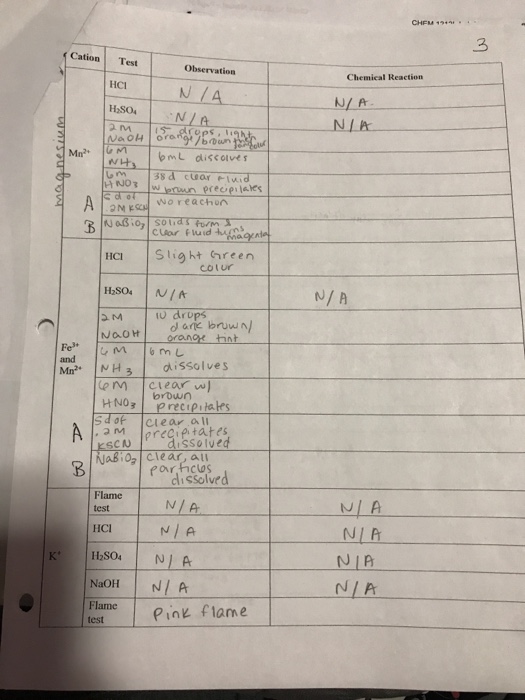 CHEM
3
Cation Test Observation Chemical Reaction
magnesium
Mn²⁺
HCl N/A N/A
H₂SO₄ N/A N/A
2M NaOH 15 drops, light
orange/brown
6M NH₃ 6mL dissolves
6m HNO₃ 38d clear fluid
w brown precipitates
A 5d of 2M KSCN no reaction
B NaBiO₃ solids form &
clear fluid turns
magenta
Fe³⁺
and
Mn²⁺
HCl Slight Green
colur
H₂SO₄ N/A N/A
2M NaOH 10 drops
dark brown/
orange tint
6M NH₃ 6mL
dissolves
6M HNO₃ clear w/
brown
precipitates
A 5d of .2M KSCN clear all
precipitates
dissolved
B NaBiO₃ clear, all
particles
dissolved
K⁺
Flame test N/A N/A
HCl N/A N/A
H₂SO₄ N/A N/A
NaOH N/A N/A
Flame test Pink flame